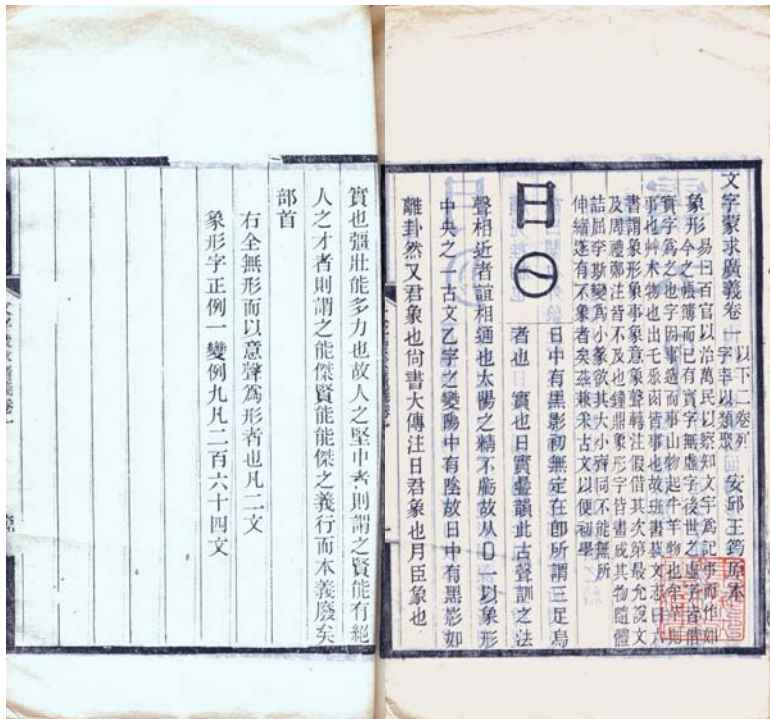 文字蒙求廣義卷一
以下二卷列
字率以類聚
安邱王筠原本
象形
易曰百官以治萬民以察知文字爲記事而作如
今之帳簿而已有實字無虛字後世之虛字皆借
實字爲之也字因事造而事由物起牛羊物也牟芈則
事也艸木物也出乇𠂹㔾皆事也故班書藝文志曰六
書謂象形象事象意象聲轉注假借其次第最允說文
及周禮鄭注皆不及也鐘鼎象形字皆畫成其物隨體
詰屈李斯變爲小篆欲其大小齊同不能無所
伸縮遂有不象者矣茲兼采古文以便初學
日
日中有黑影初無定在卽所謂三足烏
者也 實也日實疊韻此古聲訓之法
聲相近者誼相通也太陽之精不虧故从囗一以象形
中央之一古文乙字之變陽中有陰故日中有黑影如
離卦然又君象也尙書大傳注日君象也月臣象也
實也彊壯能多力也故人之堅中者則謂之賢能有絕
人之才者則謂之能傑賢能能傑之義行而本義廢矣
部首
右全無形而以意聲爲形者也凡二文
象形字正例一變例九凡二百六十四文